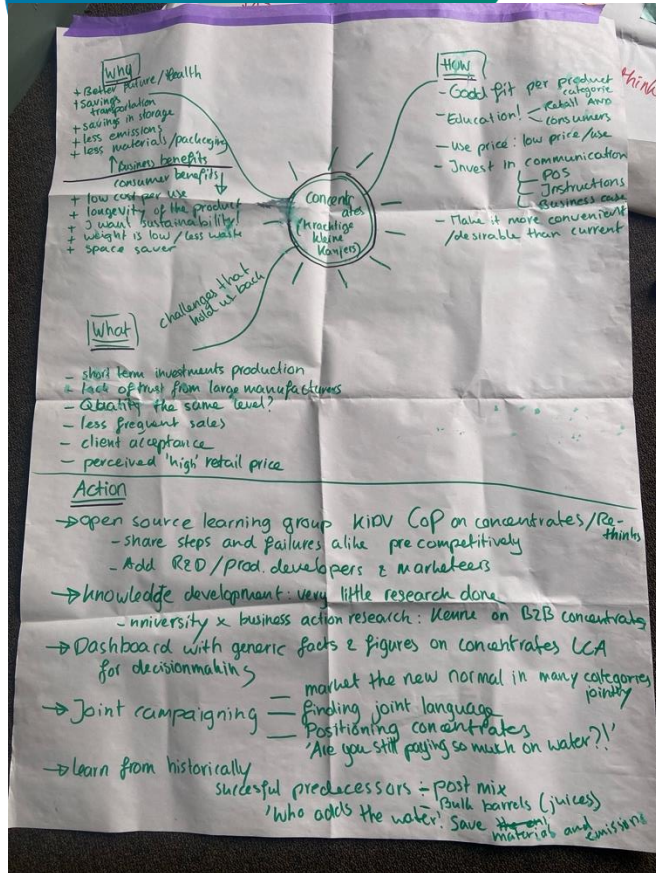 Why
+ Better future/Health
+ savings
transportation
+ savings in storage
+ less emissions
+ less materials/packaging
↑ Business benefits
consumer benefits ↓
+ low cost per use
+ longevity of the product
+ I want sustainability!
+ weight is low/less waste
+ space saver
How
- Good fit per product
categorie
- Education! Retail AND
consumers
- Use price: low price/use
- Invest in communication
- POS
- Instructions
- Business case
- Make it more convenient
/desirable than current
think
Concentr
ates
(krachtige
kleine
kanjers)
challenges that
hold us back
What
- short term investments production
- lack of trust from large manufacturers
- Quality the same level?
- less frequent sales
- client acceptance
- perceived 'high' retail price
Action
→ open source learning group KIDV CoP on concentrates/Re-
think
- share steps and failures alike pre competitively
- Add R&D/prod. developers & marketeers
→ knowledge development: very little research done
- university x business action research: on B2B concentrates
→ Dashboard with generic facts & figures on concentrates LCA
for decisionmaking
→ Joint campaigning — market the new normal in many categories
jointly
— finding joint language
— Positioning concentrates
'Are you still paying so much on water?!'
→ learn from historically
succesful predecessors - post mix
- Bulk barrels (juices)
'Who adds the water! Save material and emissions